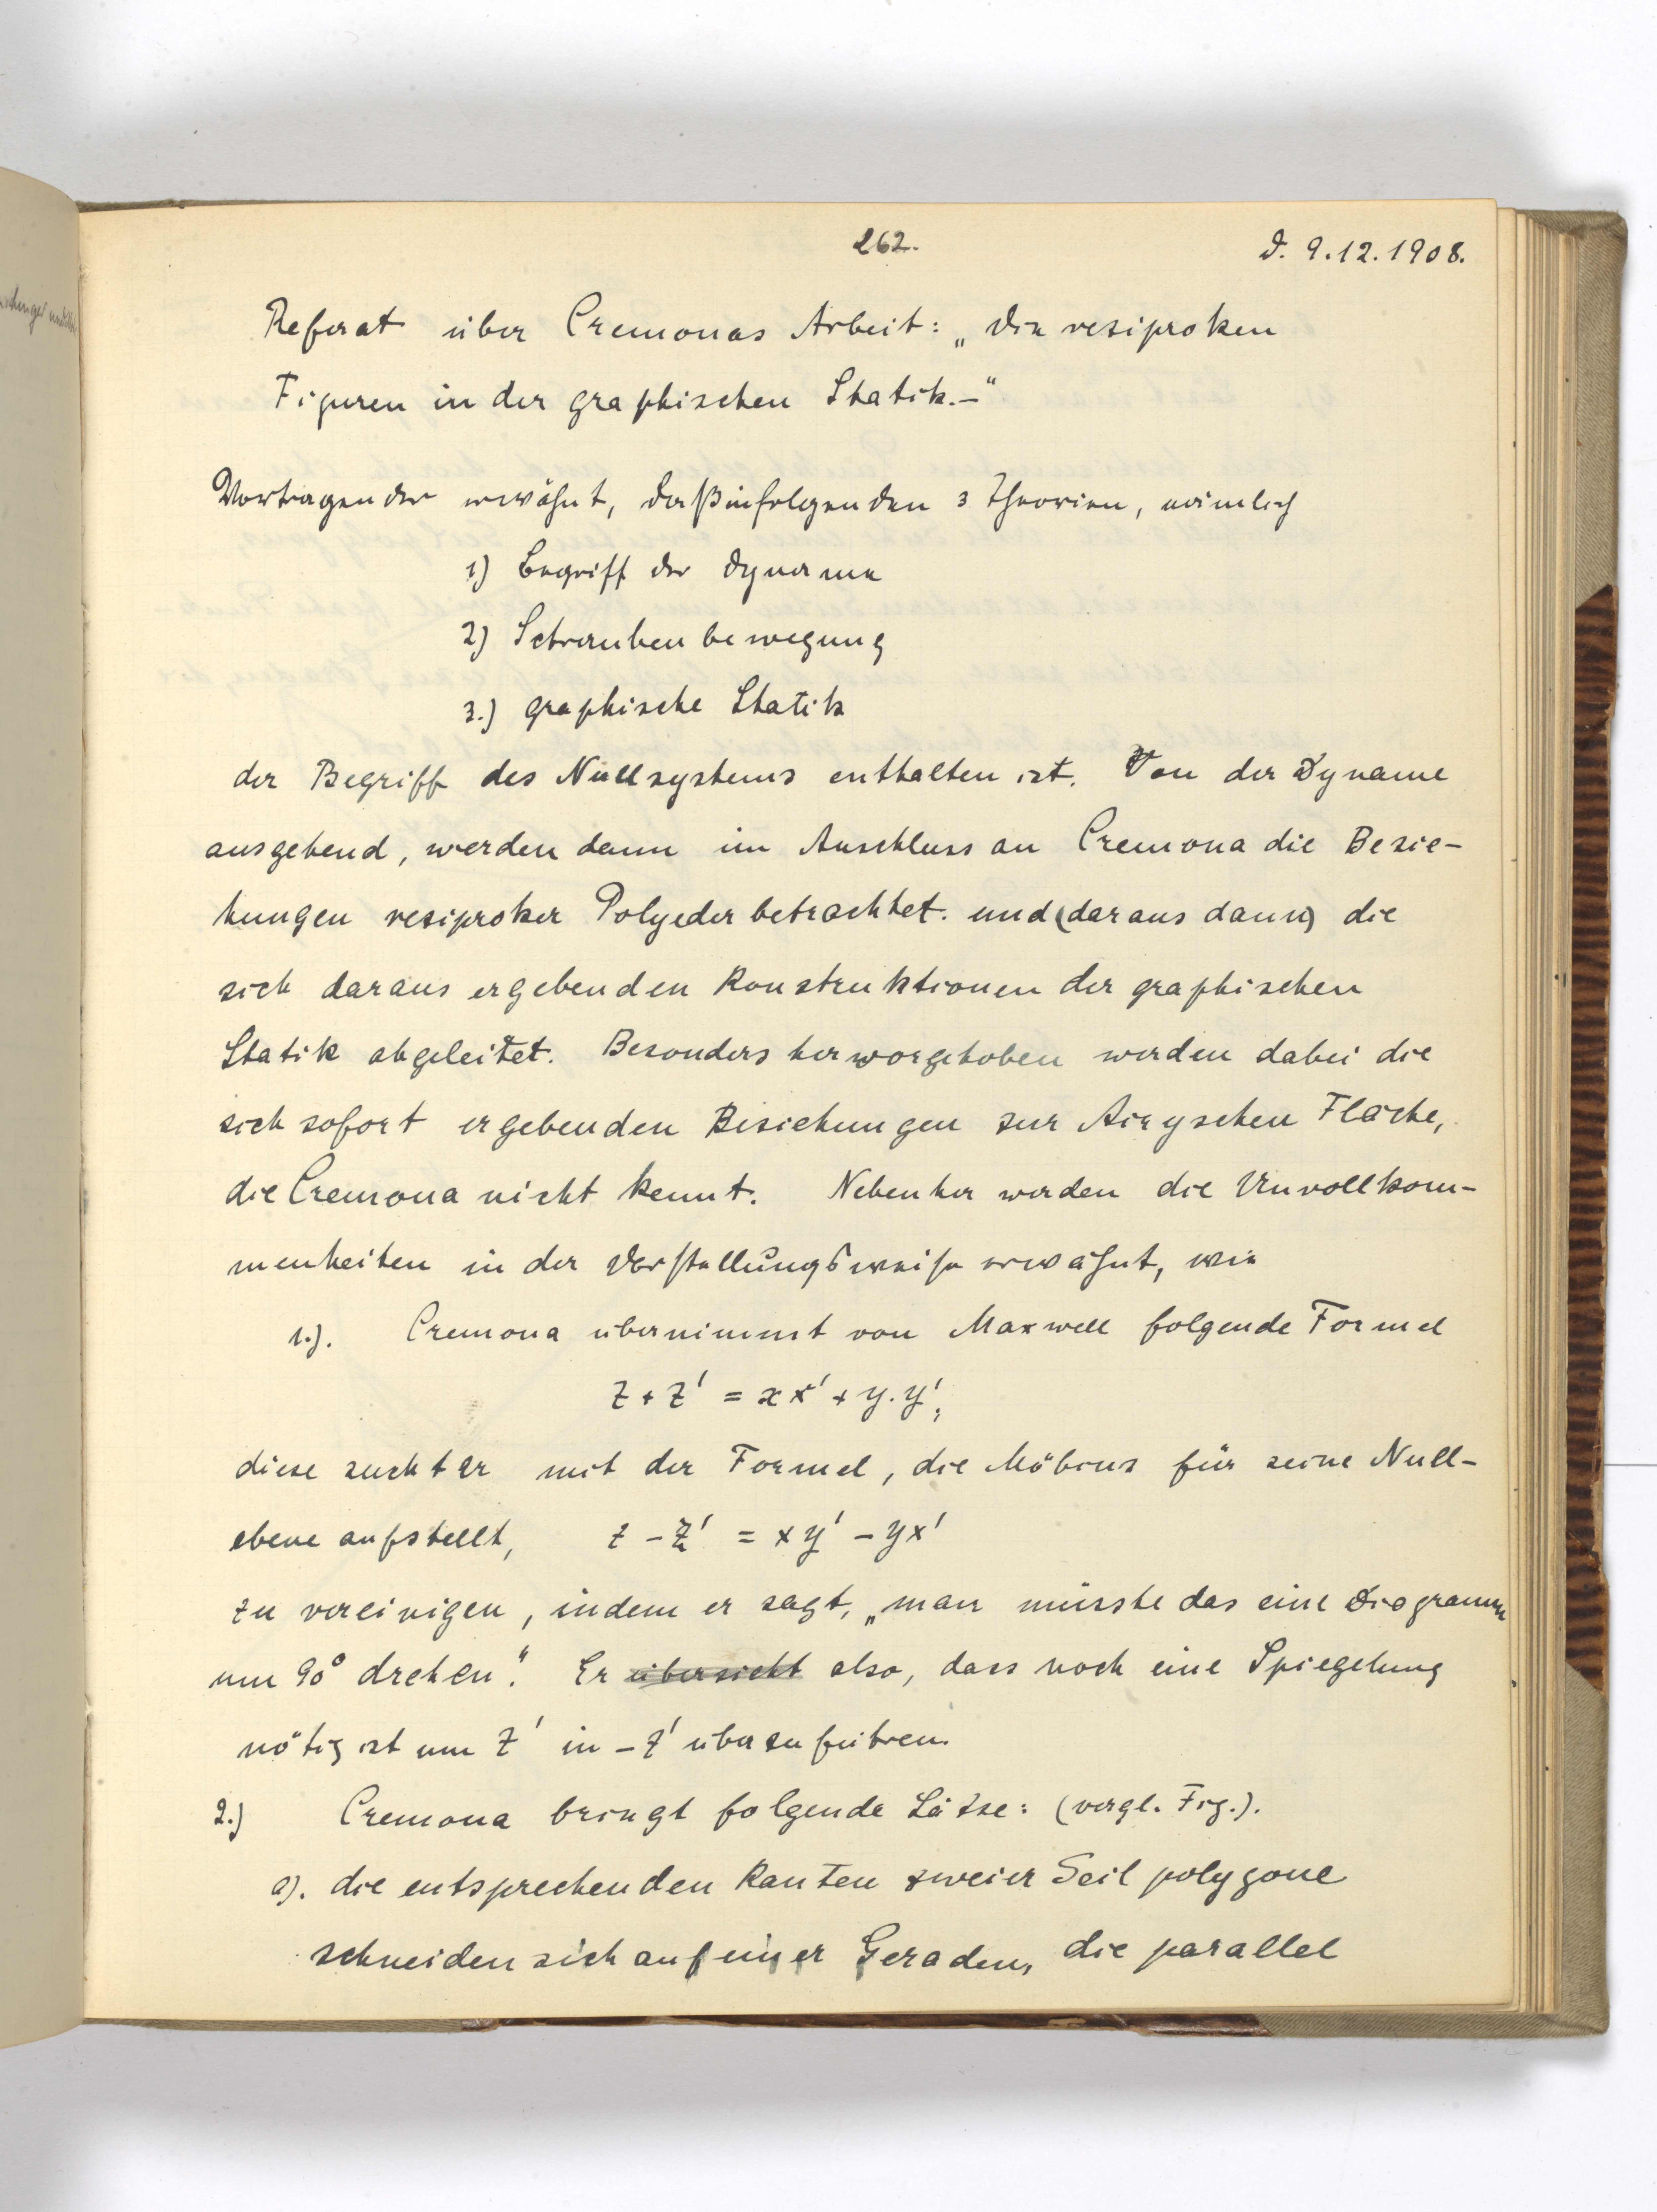 262.
d. 9.12.1908.
Referat über Cremonas Arbeit: „die reziproken
Figuren in der graphischen Statik.–“
Vortragender erwähnt, daß in folgenden 3 Theorien, nämlich
1) Begriff der Dyname
2) Schraubenbewegung
3.) graphische Statik
der Begriff des Nullsystems enthalten ist. Von der Dyname
ausgehend, werden dann im Anschluss an Cremona die Bezie-
hungen reziproker Polyeder betrachtet. und (daraus dann) die
sich daraus ergebenden Konstruktionen der graphischen
Statik abgeleitet. Besonders hervorgehoben werden dabei die
sich sofort ergebenden Beziehungen zur Airyschen Fläche,
die Cremona nicht kennt. Nebenher werden die Unvollkom-
menheiten in der Darstellungsweise erwähnt, wie
1.). Cremona übernimmt von Maxwell folgende Formel
z + z' = x x' + y. y';
diese sucht er mit der Formel, die Möbius für seine Null-
ebene aufstellt, z – z' = x y' – y x'
zu vereinigen, indem er sagt, „man müsste das eine Diagramm
um 90° drehen“. Er übersieht also, dass noch eine Spiegelung
nötig ist um z' in – z' überzuführen.
2.) Cremona bringt folgende Sätze: (vergl. Fig.).
a). die entsprechenden Kanten zweier Seilpolygone
schneiden sich auf einer Geraden, die parallel